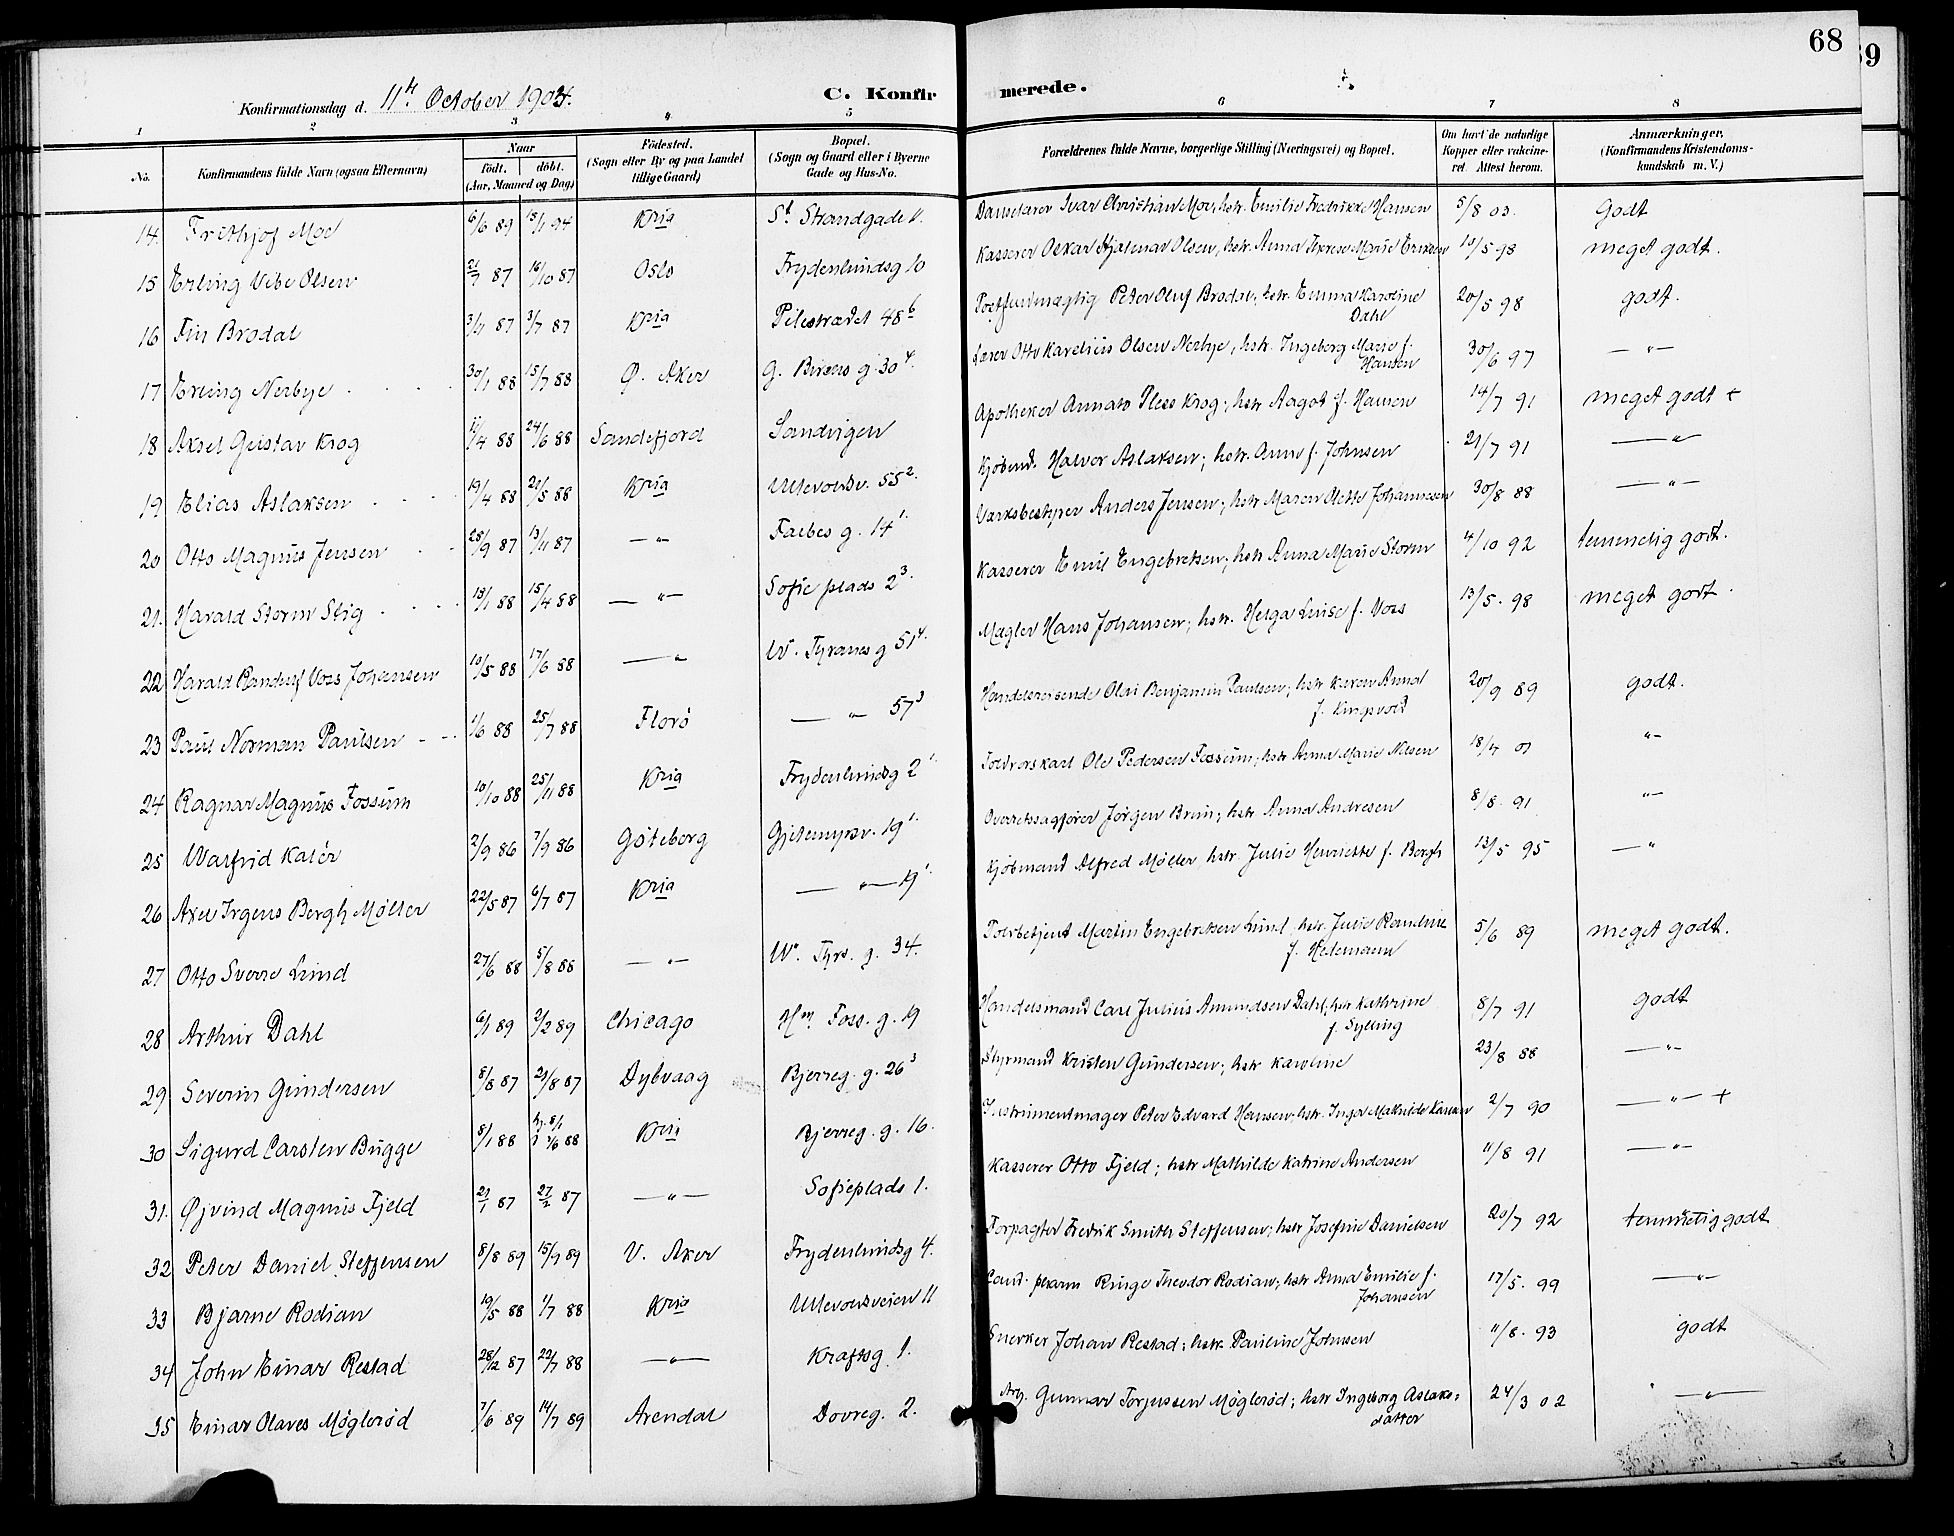 68
69
Konfirmationsdag d. 11te October 1903. C. Konfirmerede.
1 2 3 4 5 6 7 8
No. Konfirmandens fulde Navn (ogsaa Efternavn) Naar födt. döbt. (Aar, Maaned og Dag) Födested. (Sogn eller By og paa Landet tillige Gaard) Bopæl. (Sogn og Gaard eller i Byerne Gade og Hus-No. Forældrenes fulde Navne, borgerlige Stilling (Næringsvei) og Bopæl. Om havt de naturlige Kopper eller vakcineret. Attest herom. Anmærkninger. (Konfirmandens Kristendomskundskab m. V.)
14. Frithjof Moe 6/6 89 15/1 94 Kria St. Strandgade 1. Danselærer Ivar Christian Moe, hstr. Emilie Fredrikke Hansen 5/8 03. Godt
15 Erling Vibe Olsen 21/7 87 16/10 87 Oslo Frydenlundsg 10 Kasserer Oskar Hjalmar Olsen, hstr. Anna Therese Marie Eriksen 13/5 98 meget godt.
16 Fin Brodal 3/4 87 3/7 87 Kria Pilestrædet 48 b Postfuldmægtig Peter Oluf Brodal, hstr. Emma Karoline Dahl 20/5 98 godt.
17 Erling Nerbye 30/1 88 15/7 88 Ø. Aker G. Birens g. 30 4. Lærer Otto Karelius Olsen Nerbye, hstr. Ingeborg Marie f. Hansen 30/6 97 — " —
18 Aksel Gustav Krog 11/4 88 24/6 88 Sandefjord Sandvigen Apotheker Annato Pless Krog; hstr Aagot f. Hansen 14/7 91 meget godt +
19 Elias Aslaksen 19/4 88 21/5 88 Kria Ullevoldsv. 55 2. Kjöbmd. Halvor Aslaksen; hstr. Anne f. Johnsen 21/7 91 — "
20 Otto Magnus Jensen 25/9 87 13/11 87 — " — Falbes g. 14 1. Værksbestyrer Anders Jensen; hstr Maren Mette Johannesen 30/8 88 — " —
21. Harald Storm Stig 13/1 88 15/4 88 — " — Sofie plads 2 3. Kasserer Emil Engebretsen; hstr Anna Marie Storm 4/10 92 temmelig godt.
22 Harald Randulf Voss Johansen 10/5 88 17/6 88 — " W. Thranes g 51 4. Mægler Hans Johansen; hstr. Helga Luise f. Voss 13/5. 98 meget godt.
23 Paul Norman Paulsen 1/6 88 25/7 88 Florö — " 57 3 Handelsreisende Olai Benjamin Paulsen; hstr Karen Anna f. Kingsvold 20/9 89 godt.
24 Ragnar Magnus Fossum 10/10 88 25/11 88 Kria Frydenlundsg 2 1. Toldrorskarl Ole Pedersen Fossum; hstr Anna Marie Nilsen 18/4 01 " —
25 Walfrid Kalér 2/9 86 7/9 86 Göteborg Gjetemyrsv. 19 1. Overretssagförer Jörgen Brun; hstr Anna Andresen 8/8. 91 " —
26 Axel Irgens Bergh Möller 22/5 87 6/7 87 Kria — " — 19 1. Kjöbmand Alfred Möller, hstr. Julie Henriette f. Bergh 13/5 95 — "
27 Otto Sverre Lund 27/6 88 5/8 88 — " — W. Thrs. g. 34. Toldbetjent Martin Engebretsen Lund, hstr. Julie Randine f. Hedemann 5/6 89 meget godt.
28 Arthur Dahl 6/1 89 2/2 89 Chicago Hm. Foss. g. 19 Handelsmand Carl Julius Amundsen Dahl; hstr Kathrine f. Sylling 8/7 91 godt
29 Severin Gundersen 8/8 87 21/8 87 Dybvaag Bjerreg. g. 26 3 Styrmand Kristen Gundersen; hstr Karoline 23/8 88 — " —
30 Sigurd Carsten Bugge 8/1 88 hj. 8/1 3/6 88 Kria Bjerreg. g. 16. Instrumentmager Peter Edvard Hansen; hstr. Inga Mathilde Karlsen 2/7 90 — " — +
31. Øjvind Magnus Fjeld 21/1 87 27/2 87 — " — Sofieplads 1. Kasserer Otto Fjeld; hstr Mathilde Katrine Andersen 11/8 91 — " —
32 Peter Daniel Steffensen 8/8 89 15/9 89 V. Aker Frydenlundsg 4. Forpagter Fredrik Smith Steffensen; hstr Josefine Danielsen 20/7 92 temmelig godt
33 Bjarne Rodian 19/5 88 1/7 88 Kria Ullevoldsveien 11 Cand. pharm Ringe Theodor Rodian; hstr Anna Emilie f. Johansen 17/5. 99 — " —
34 John Einar Restad 28/12 87 22/7 88 — " — Kraftsg 1. Snerker Johan Restad; hstr. Pauline Johnsen 11/8. 93 godt
35 Einar Olaves Møglerød 7/6 89 14/7 89 Arendal Dovreg. 2. Arb. Gunnar Torjussen Møglerød; hstr Ingeborg Aslaksdatter 24/3 02 — " —